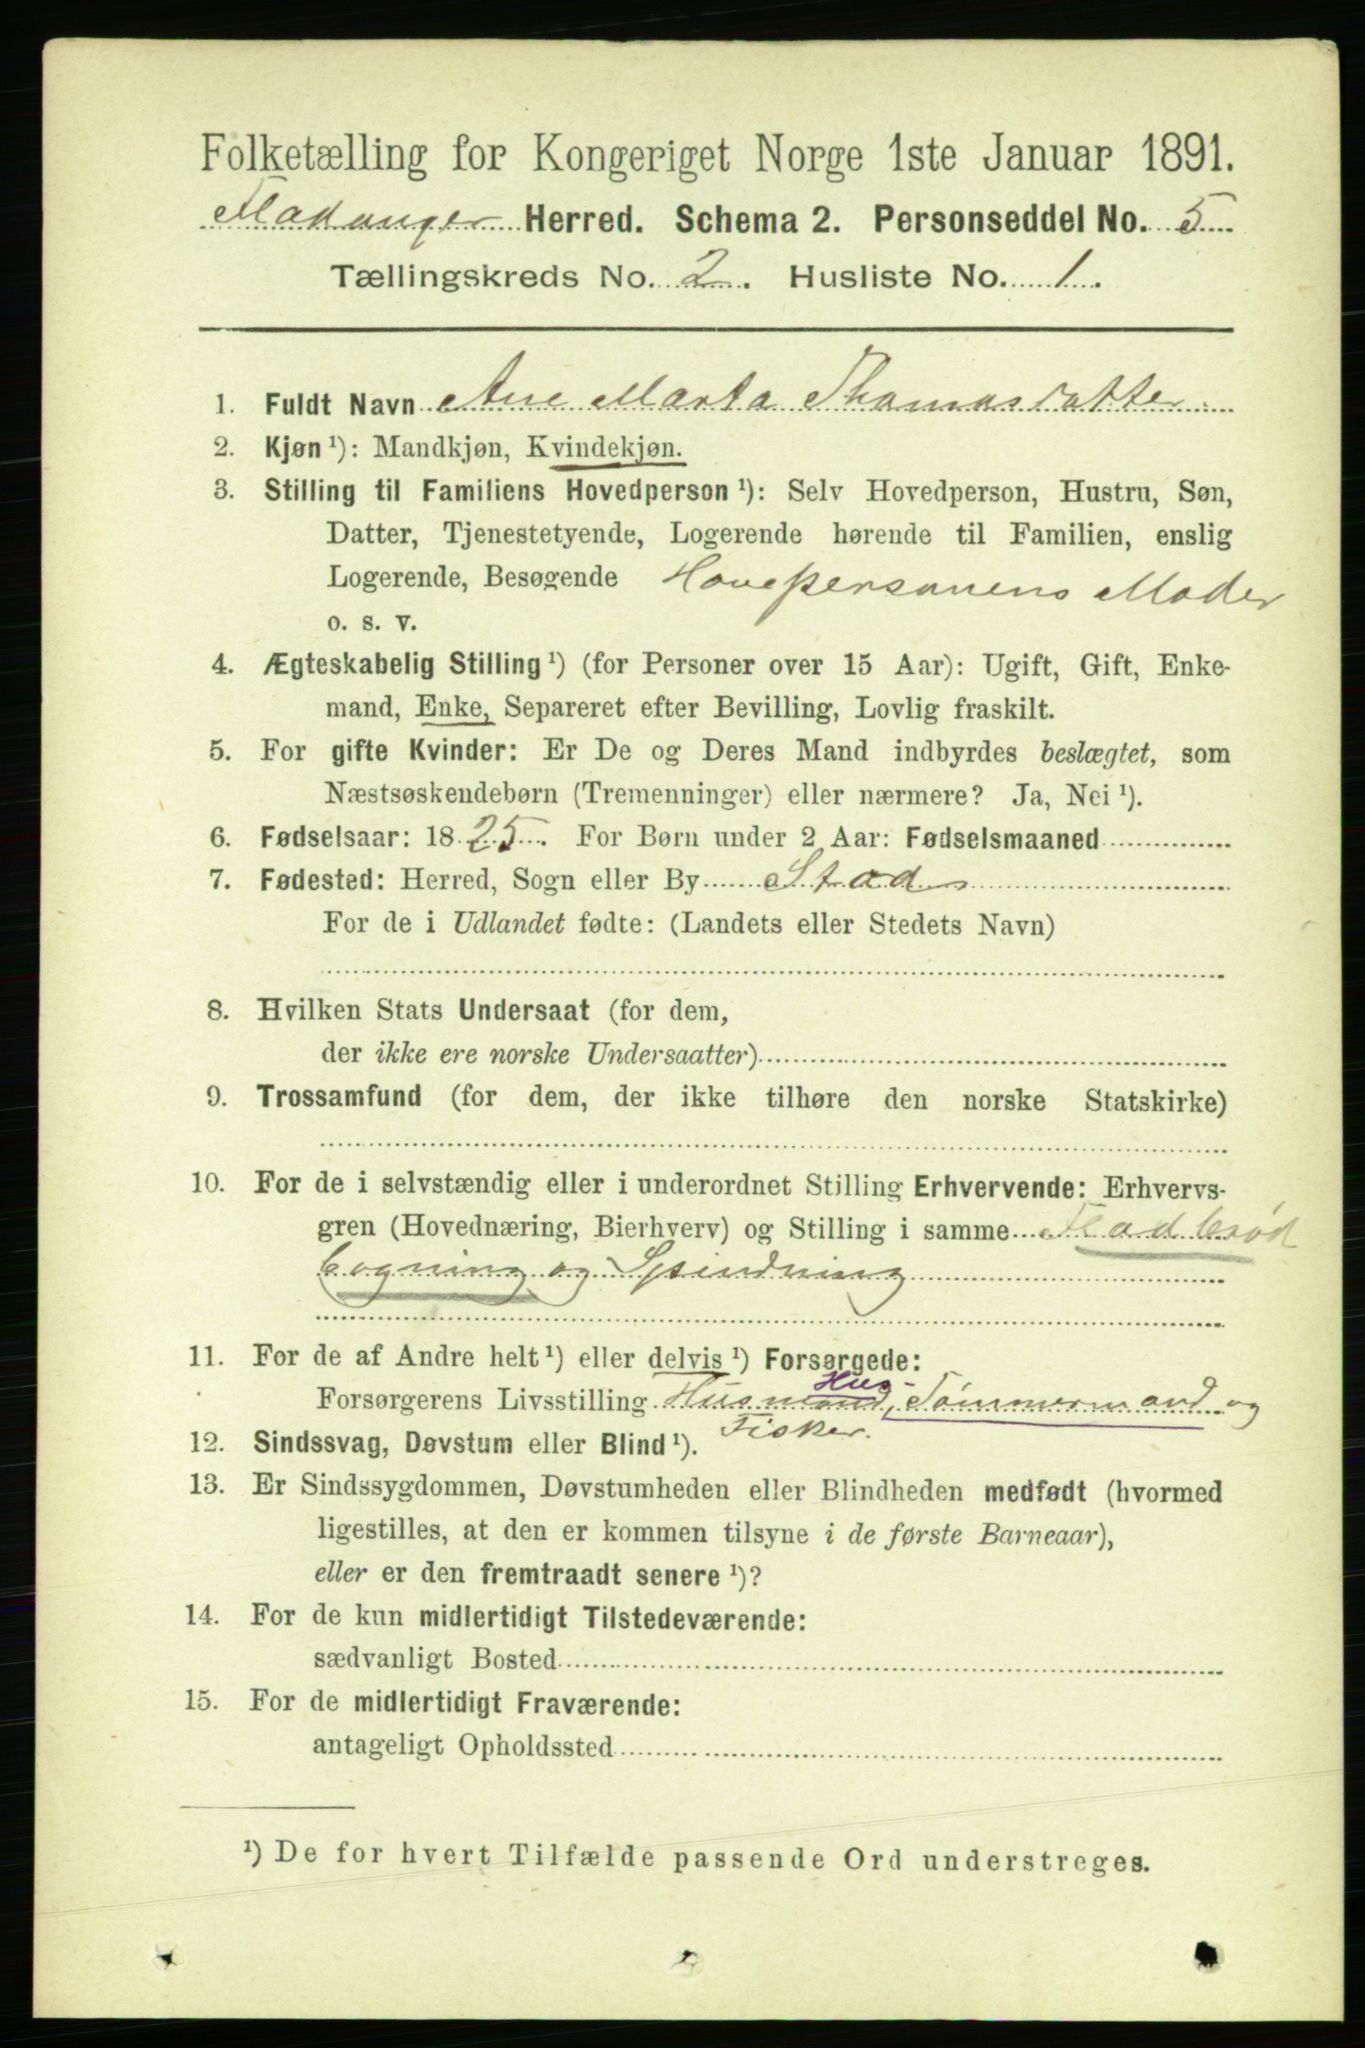 Folketælling for Kongeriget Norge 1ste Januar 1891.
Fladanger Herred. Schema 2. Personseddel No. 5
Tællingskreds No. 2. Husliste No. 1.
1. Fuldt Navn Ane Marta Thomasdatter
2. Kjøn ¹): Mandkjøn, Kvindekjøn.
3. Stilling til Familiens Hovedperson ¹): Selv Hovedperson, Hustru, Søn,
Datter, Tjenestetyende, Logerende hørende til Familien, enslig
Logerende, Besøgende Hovepersonens Moder
o. s. v.
4. Ægteskabelig Stilling ¹) (for Personer over 15 Aar): Ugift, Gift, Enke-
mand, Enke, Separeret efter Bevilling, Lovlig fraskilt.
5. For gifte Kvinder: Er De og Deres Mand indbyrdes beslægtet, som
Næstsøskendebørn (Tremenninger) eller nærmere? Ja, Nei ¹).
6. Fødselsaar: 1825. For Børn under 2 Aar: Fødselsmaaned
7. Fødested: Herred, Sogn eller By Stod
For de i Udlandet fødte: (Landets eller Stedets Navn)
8. Hvilken Stats Undersaat (for dem,
der ikke ere norske Undersaatter)
9. Trossamfund (for dem, der ikke tilhøre den norske Statskirke)
10. For de i selvstændig eller i underordnet Stilling Erhvervende: Erhvervs-
gren (Hovednæring, Bierhverv) og Stilling i samme Fladbrød
bagning og Spindning
11. For de af Andre helt ¹) eller delvis ¹) Forsørgede:
Hus-
Forsørgerens Livsstilling Husmand, Tømmermand og
Fisker.
12. Sindssvag, Døvstum eller Blind ¹).
13. Er Sindssygdommen, Døvstumheden eller Blindheden medfødt (hvormed
ligestilles, at den er kommen tilsyne i de første Barneaar),
eller er den fremtraadt senere ¹)?
14. For de kun midlertidigt Tilstedeværende:
sædvanligt Bosted
15. For de midlertidigt Fraværende:
antageligt Opholdssted
¹) De for hvert Tilfælde passende Ord understreges.